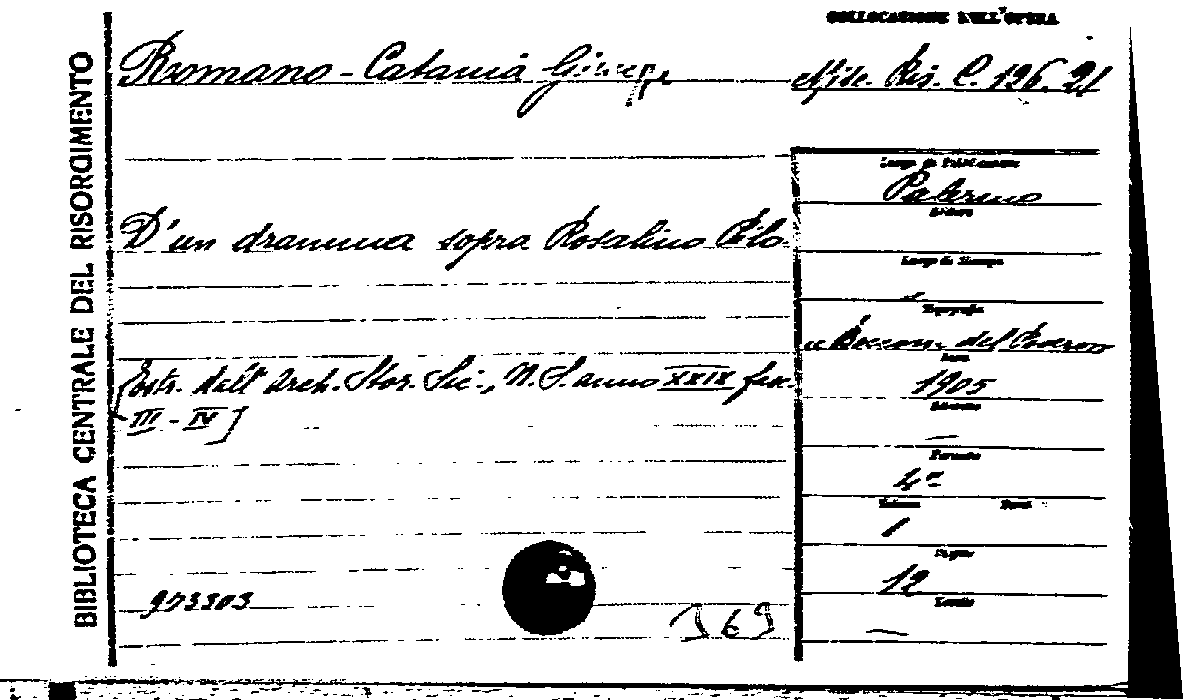 COLLOCAZIONE DELL'OPERA
BIBLIOTECA CENTRALE DEL RISORGIMENTO
Romano-Catania Giuseppe
Misc. Ris. C. 196. 21
Luogo di Pubblicazione
Palermo
Editore
D'un dramma sopra Rosalino Pilo
Luogo di Stampa
Tipografia
"Boccon. del Povero
Anno
[Estr. dall' Arch. Stor. Sic., N. S. anno XXIX fasc.
III - IV]
1905
Edizione
—
Formato
4°
Volume
1
Pagine
12
Tavole
—
973303
369